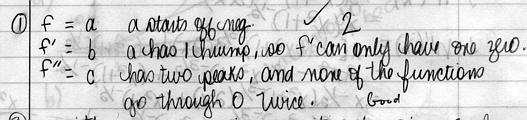 ① f = a a starts off neg. ✓ 2
f' = b a has 1 hump, so f' can only have one zero.
f'' = c has two peaks, and none of the functions
go through 0 twice. Good